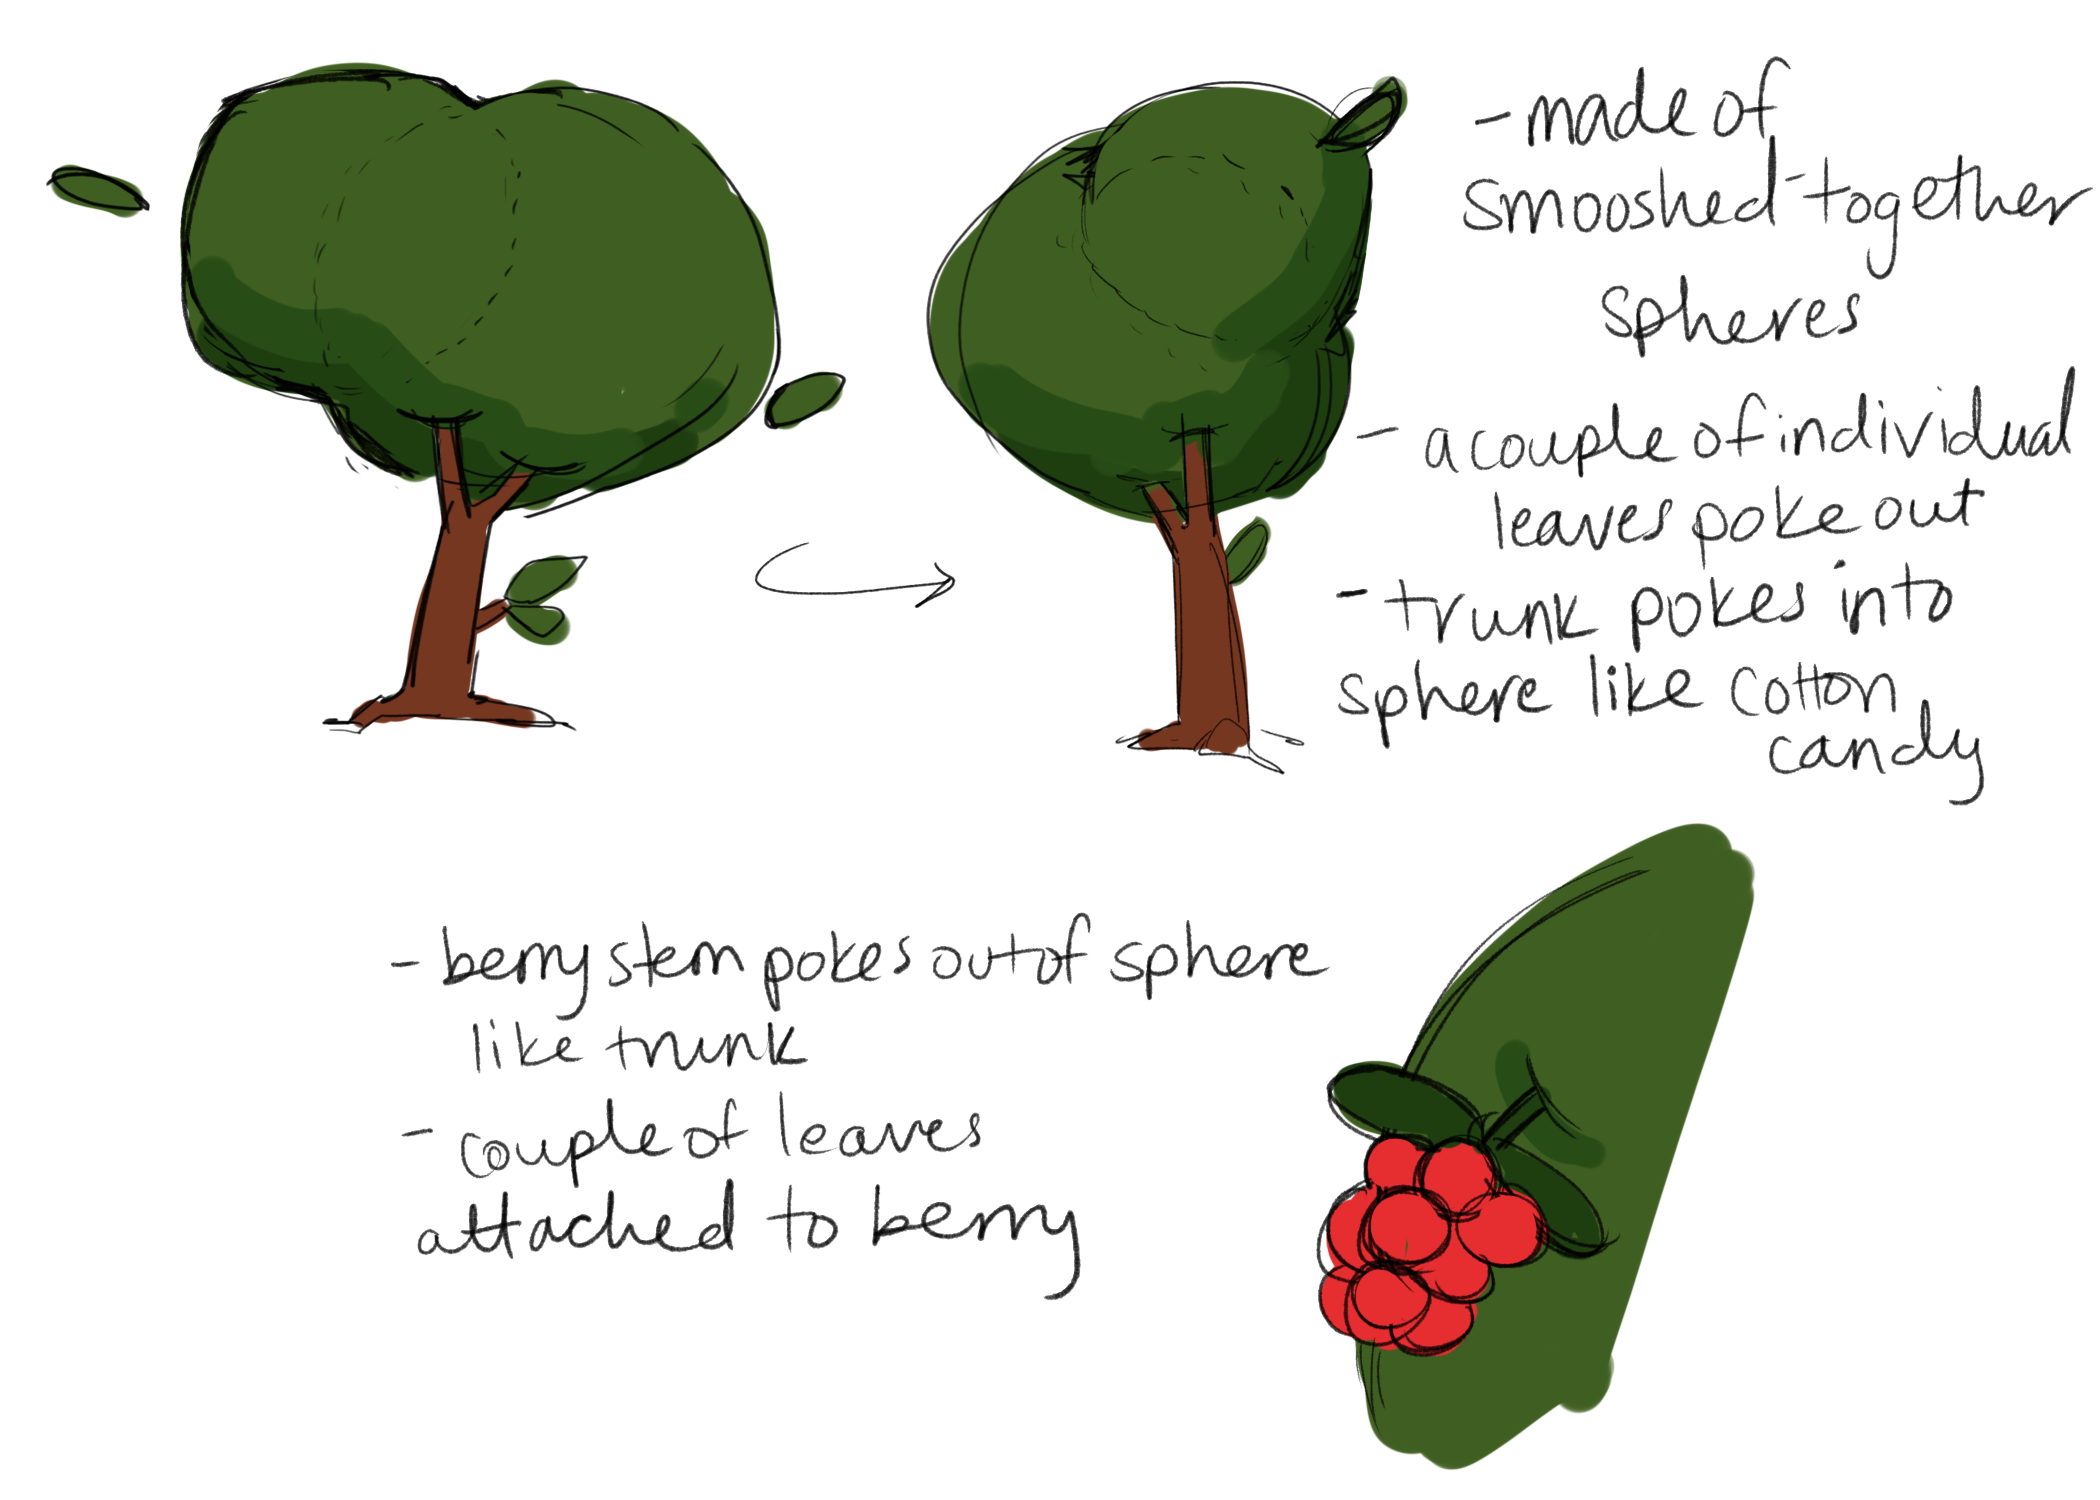 - made of
smooshed-together
spheres
- a couple of individual
leaves poke out
- trunk pokes into
sphere like cotton
candy
- berry stem pokes out of sphere
like trunk
- couple of leaves
attached to berry